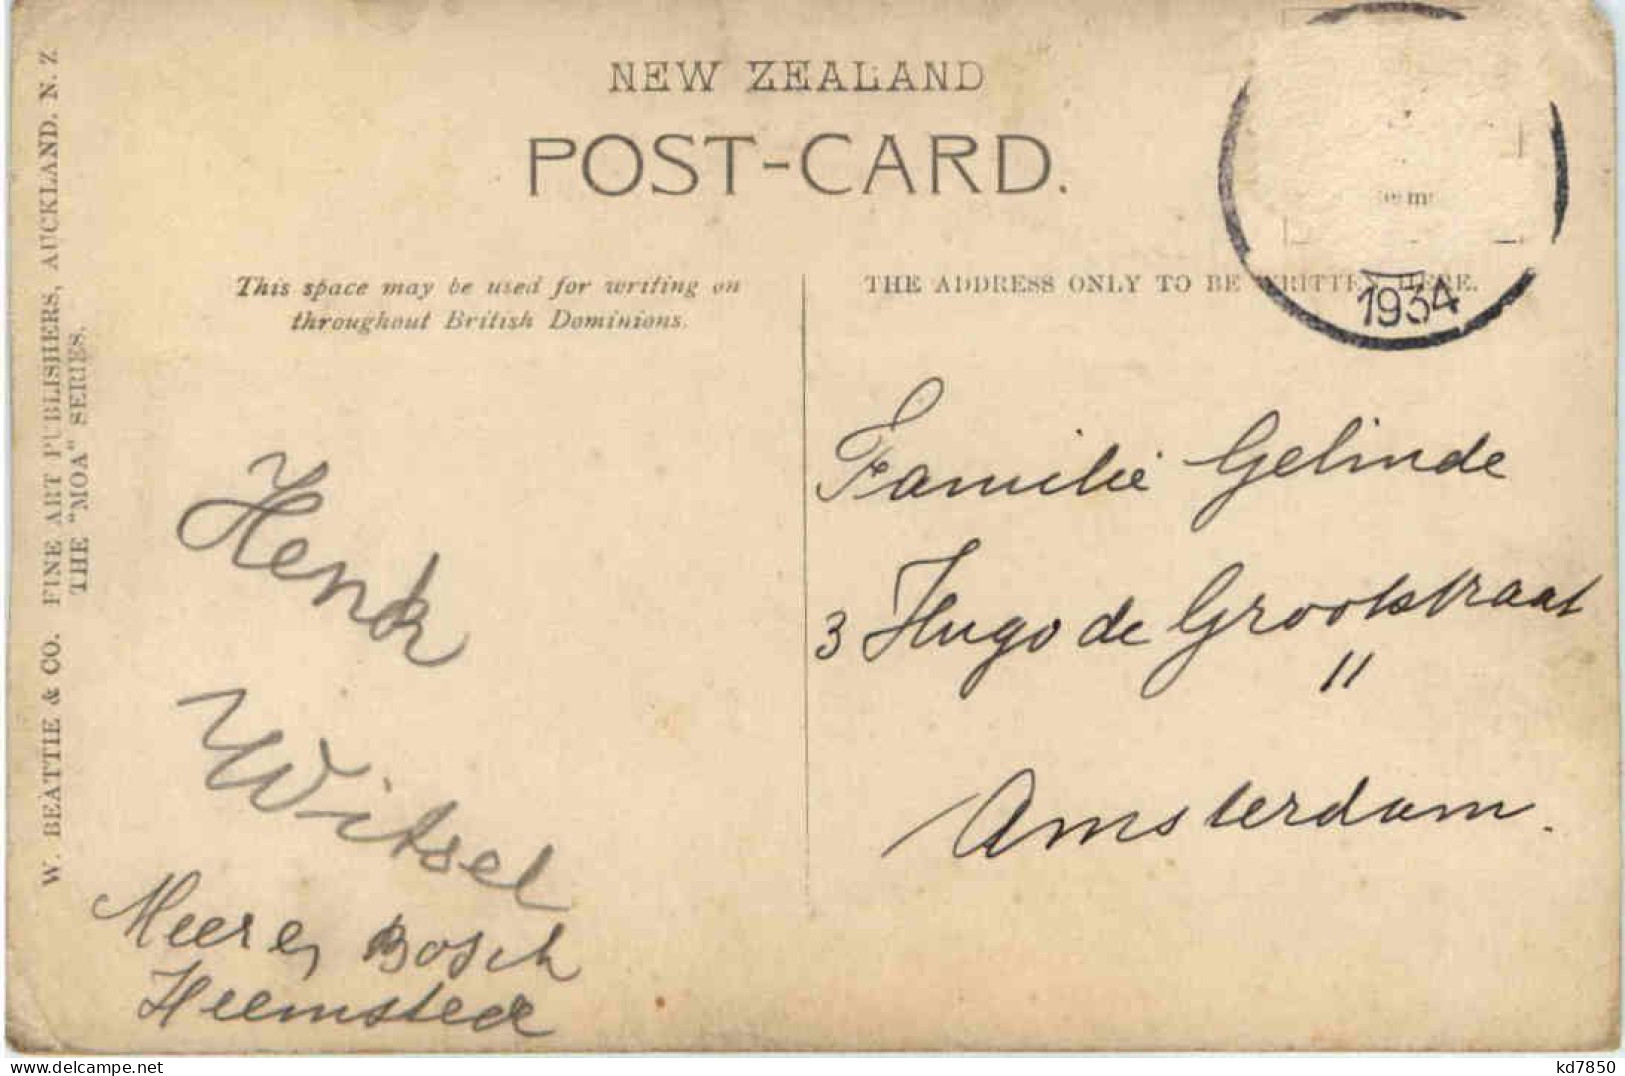 NEW ZEALAND
POST-CARD.
This space may be used for writing on
throughout British Dominions.
THE ADDRESS ONLY TO BE WRITTEN HERE.
1934
W. BEATTIE & CO. FINE ART PUBLISHERS, AUCKLAND. N. Z.
THE "MOA" SERIES.
Henk
Witsel
Meer en Bosch
Heemstede
Familie Gelinde
3 Hugo de Grootstraat
"
Amsterdam.
kd7850